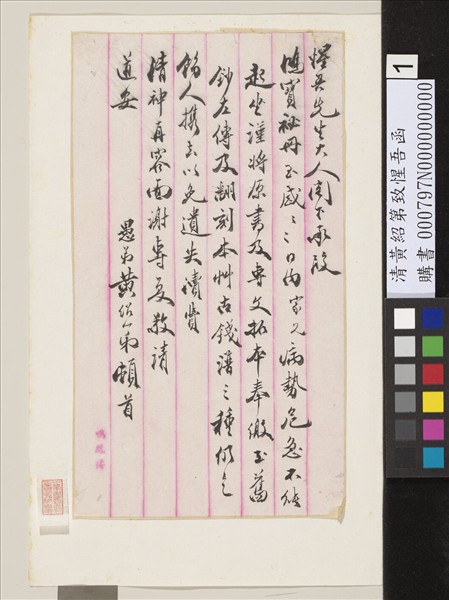 惺吾先生大人閣下承假
賜寶祕冊至感三日內家兄病勢危急不能
起坐謹將原書及專文拓本奉繳至舊
鈔左傳及翻刻本艸古錢譜三種仍乞
飭人携去以免遺失債費
清神再容面謝專复敬請
道安
愚弟黃紹第頓首
1
清黃紹第致惺吾函
購書 000797N000000000